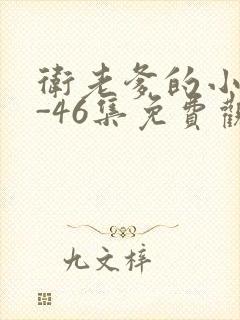 衛老爹的小
-46集免費觀
九文梓